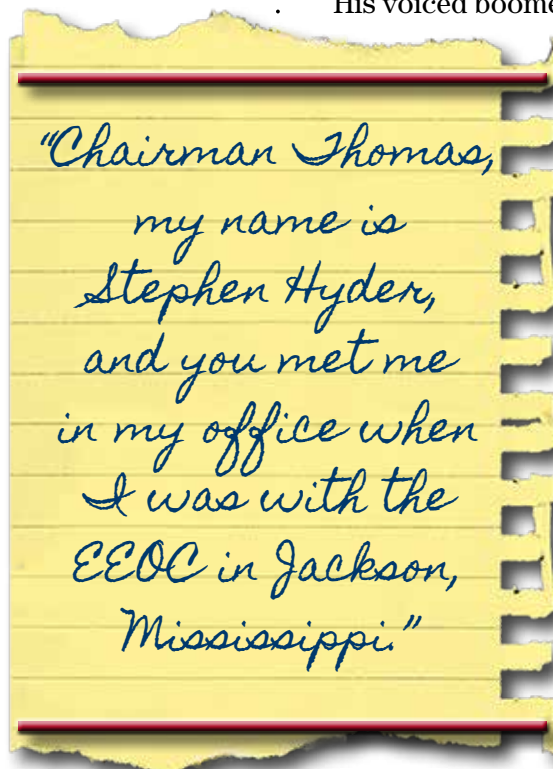 . His voiced boome
"Chairman Thomas,
my name is
Stephen Hyder,
and you met me
in my office when
I was with the
EEOC in Jackson,
Mississippi."